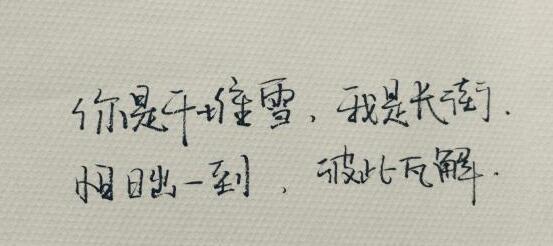 你是千堆雪，我是长街.
怕日出一到，彼此瓦解.